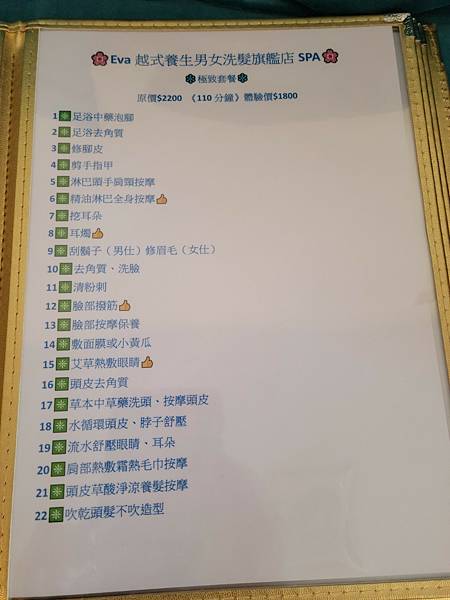 🌸Eva 越式養生男女洗髮旗艦店 SPA🌸
❇極致套餐❇
原價$2200 《110 分鐘》體驗價$1800
1❇足浴中藥泡腳
2❇足浴去角質
3❇修腳皮
4❇剪手指甲
5❇淋巴頭手肩頸按摩
6❇精油淋巴全身按摩👍
7❇挖耳朵
8❇耳燭👍
9❇刮鬍子（男仕）修眉毛（女仕）
10❇去角質、洗臉
11❇清粉刺
12❇臉部撥筋👍
13❇臉部按摩保養
14❇敷面膜或小黃瓜
15❇艾草熱敷眼睛👍
16❇頭皮去角質
17❇草本中草藥洗頭、按摩頭皮
18❇水循環頭皮、脖子舒壓
19❇流水舒壓眼睛、耳朵
20❇肩部熱敷霜熱毛巾按摩
21❇頭皮草酸淨涼養髮按摩
22❇吹乾頭髮不吹造型